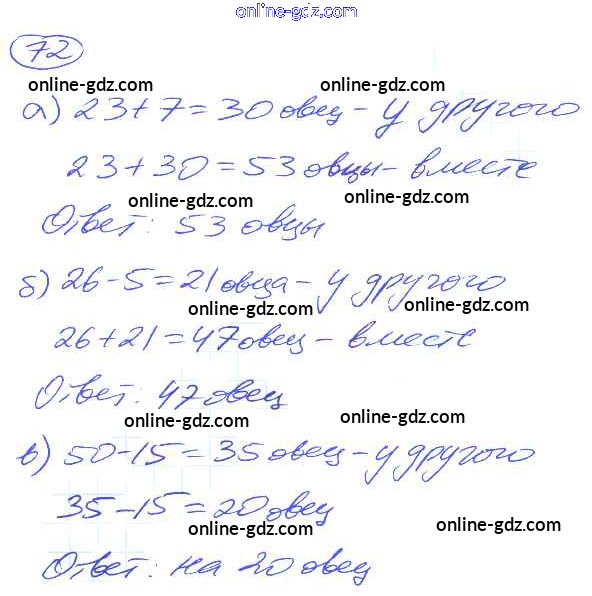 online-gdz.com
72
online-gdz.com online-gdz.com
а) 23+7=30 овец - у другого
online-gdz.com
23+30=53 овцы - вместе
online-gdz.com
Ответ: 53 овцы
б) 26-5=21 овца - у другого
online-gdz.com online-gdz.com
26+21=47 овец - вместе
Ответ: 47 овец
online-gdz.com online-gdz.com
в) 50-15=35 овец - у другого
35-15=20 овец
online-gdz.com online-gdz.com
Ответ: на 20 овец